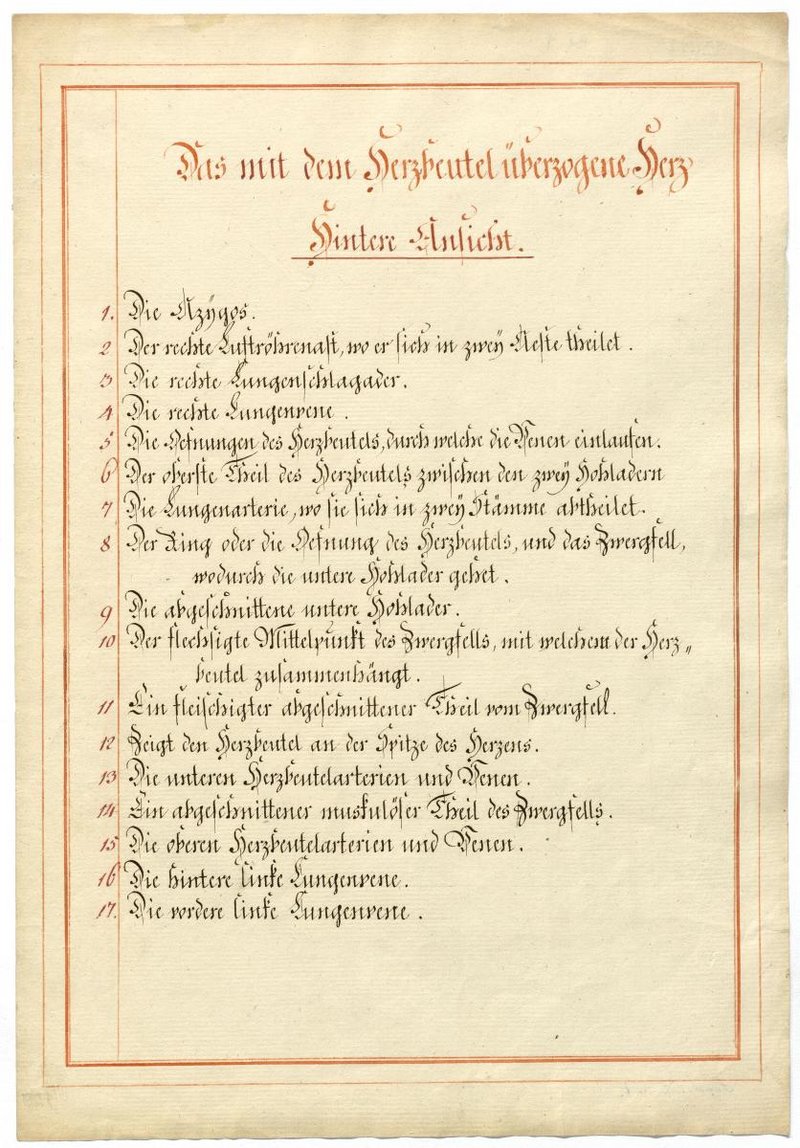 Das mit dem Herzbeutel überzogene Herz
Hintere Ansicht.
1. Die Azÿgos.
2 Der rechte Luftröhrenast, wo er sich in zweÿ Aeste theilet.
3 Die rechte Lungenschlagader.
4 Die rechte Lungenvene.
5 Die Oefnungen des Herzbeutels, durch welche die Venen einlaufen.
6 Der oberste Theil des Herzbeutels zwischen den zweÿ Hohladern
7 Die Lungenarterie, wo sie sich in zweÿ Stämme abtheilet.
8 Der Ring oder die Oefnung des Herzbeutels, und das Zwergfell,
wodurch die untere Hohlader gehet.
9 Die abgeschnittene untere Hohlader.
10 Der flechsigte Mittelpunkt des Zwergfells, mit welchem der Herz„
beutel zusammenhängt.
11 Ein fleischigter abgeschnittener Theil vom Zwergfell.
12 Zeigt den Herzbeutel an der Spitze des Herzens.
13 Die unteren Herzbeutelarterien und Venen.
14 Ein abgeschnittener muskulöser Theil des Zwergfells.
15 Die oberen Herzbeutelarterien und Venen.
16 Die hintere linke Lungenvene.
17. Die vordere linke Lungenvene.